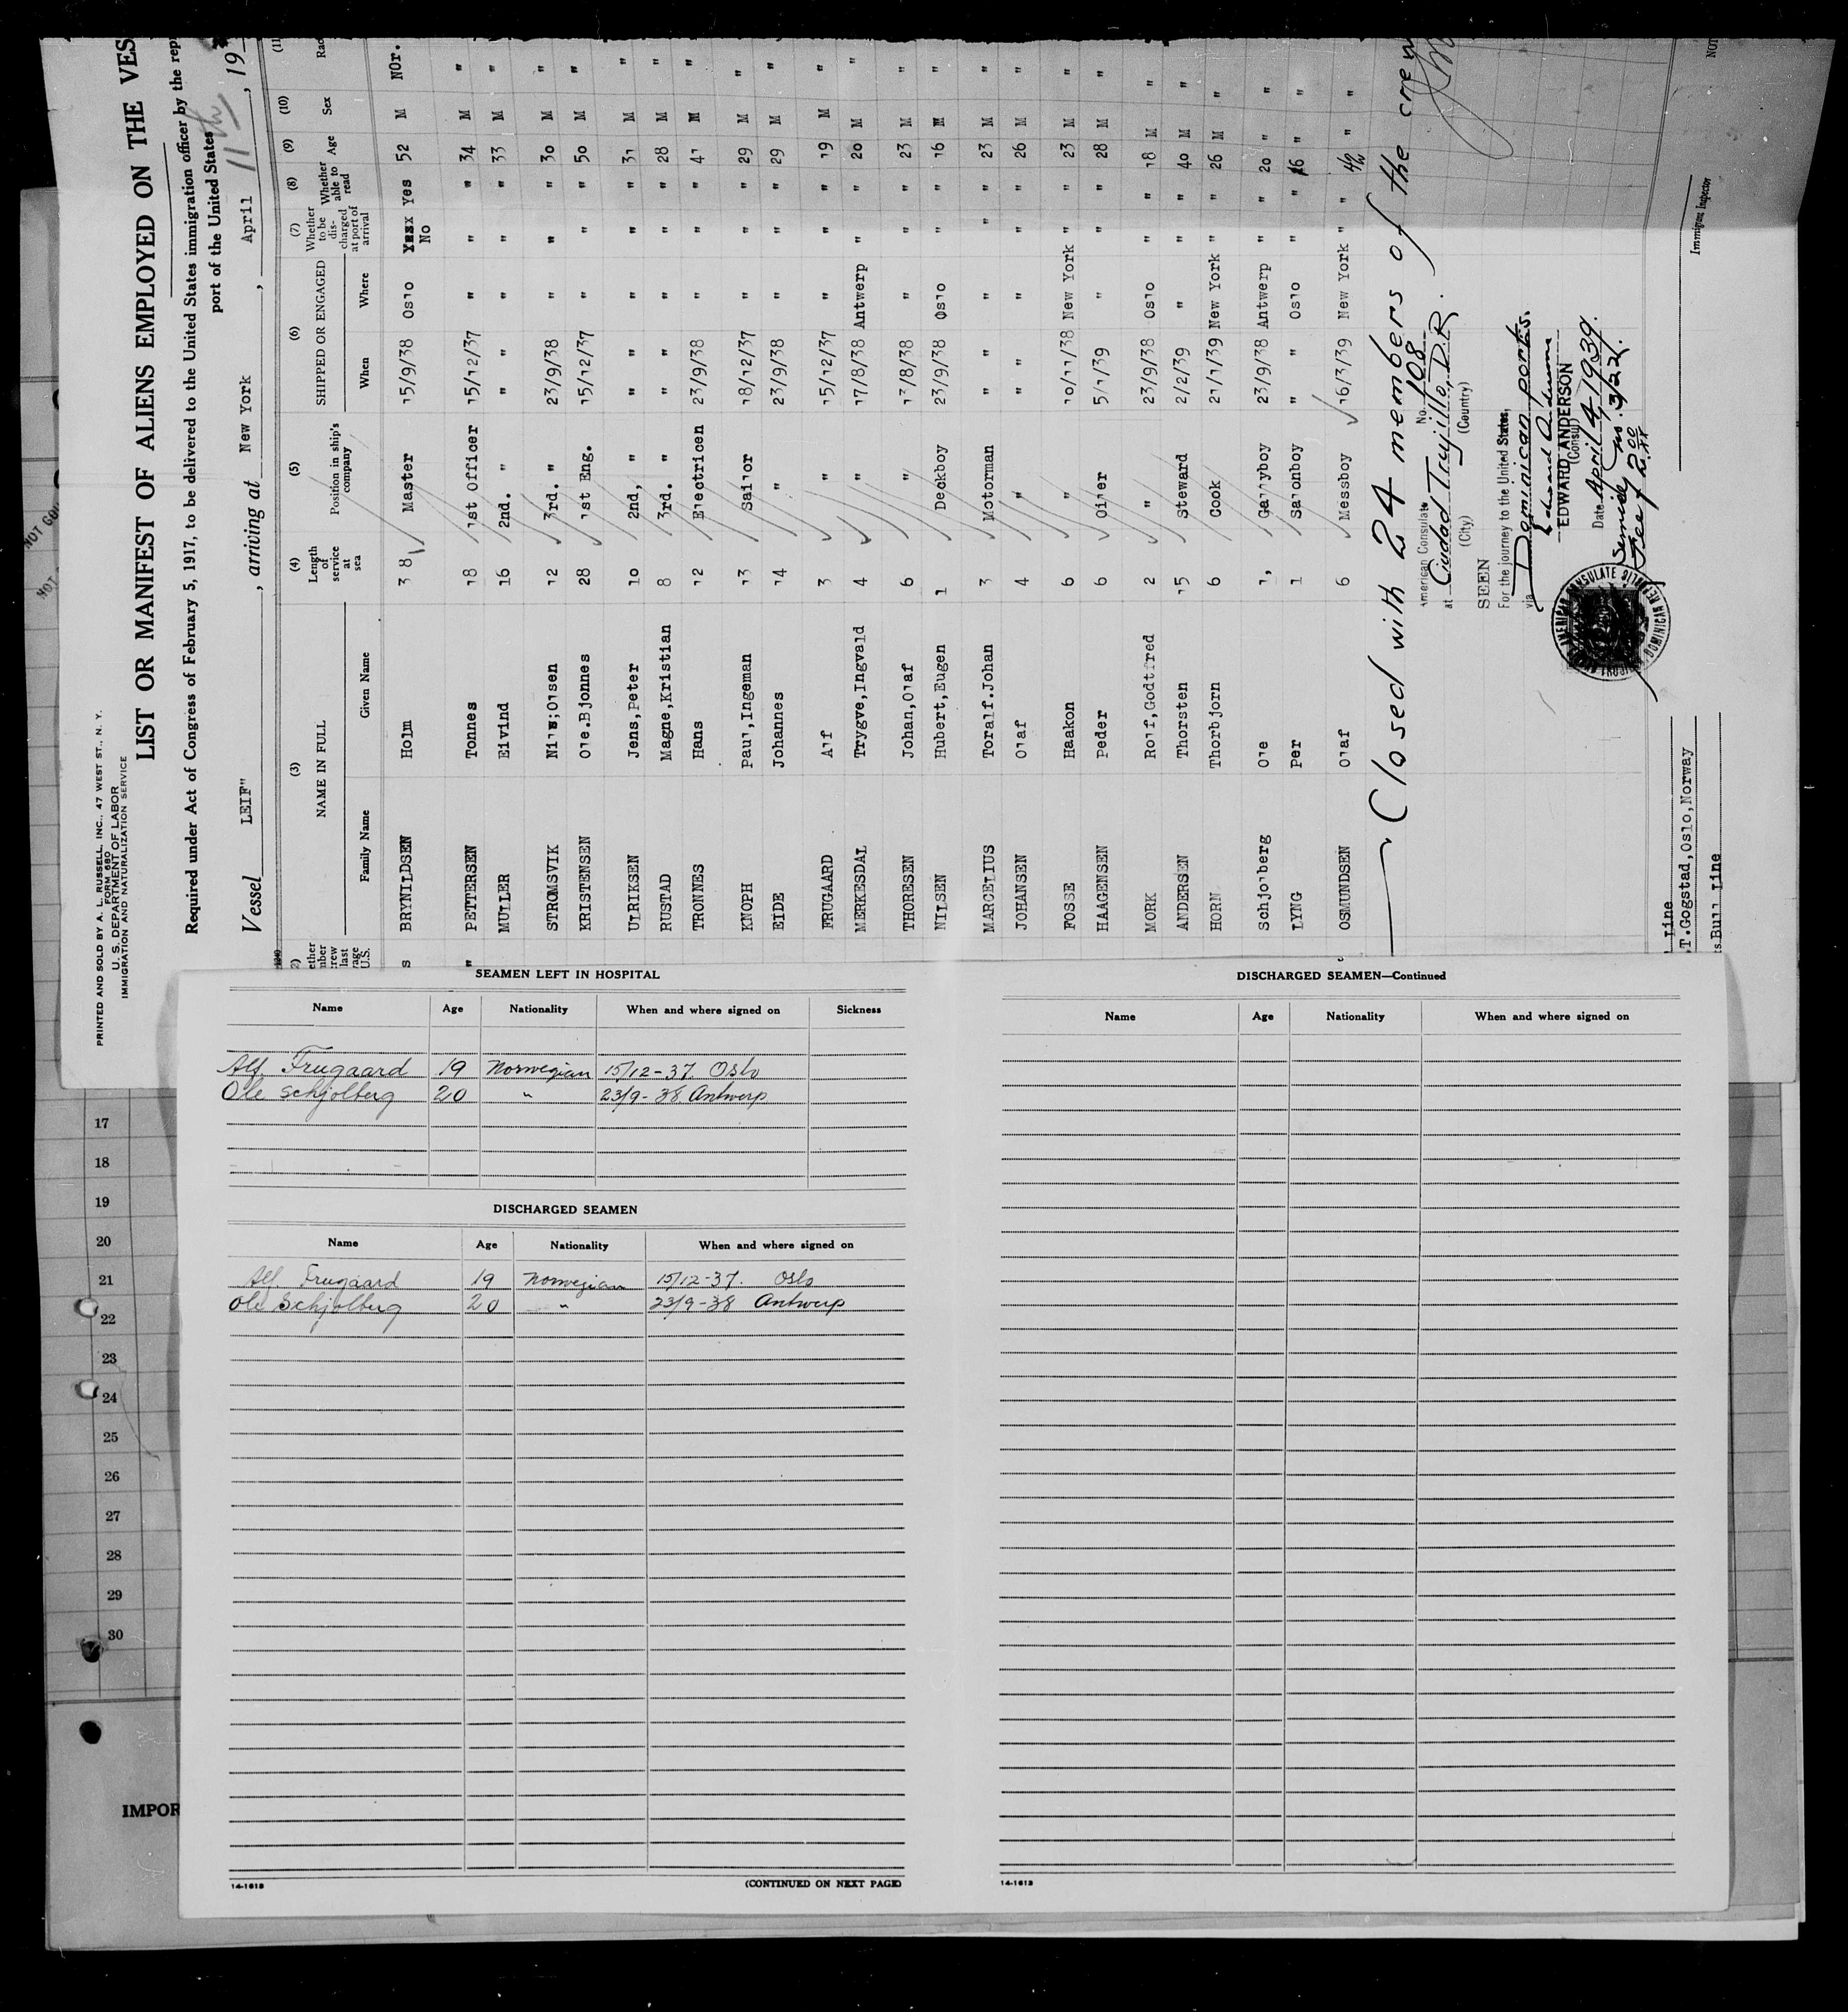 PRINTED AND SOLD BY A. L. RUSSELL, INC., 47 WEST ST., N. Y.
FORM 680
U. S. DEPARTMENT OF LABOR
IMMIGRATION AND NATURALIZATION SERVICE
LIST OR MANIFEST OF ALIENS EMPLOYED ON THE VES
Required under Act of Congress of February 5, 1917, to be delivered to the United States immigration officer by the repr
port of the United States
Vessel LEIF" , arriving at New York , April 11th , 19
(3) (4) (5) (6) (7) (8) (9) (10) (11
NAME IN FULL Length of service at sea Position in ship's company SHIPPED OR ENGAGED Whether to be discharged at port of arrival Whether able to read Age Sex Rac
Family Name Given Name When Where
BRYNILDSEN Holm 38 Master 15/9/38 Oslo No Yes 52 M NOr.
PETTERSEN Tonnes 18 1st Officer 15/12/37 " " " 34 M "
MULLER Eivind 16 2nd. " " " " " 33 M "
STROMSVIK Nils;Olsen 12 3rd. " 23/9/38 " " " 30 M "
KRISTENSEN Ole.Bjonnes 28 1st Eng. 15/12/37 " " " 50 M "
ULRIKSEN Jens,Peter 10 2nd, " " " " " 31 M "
RUSTAD Magne,Kristian 8 3rd. " " " " " 28 M "
TRONNES Hans 12 Electricen 23/9/38 " " " 41 M "
KNOPH Paul,Ingeman 13 Sailor 18/12/37 " " " 29 M "
EIDE Johannes 14 " 23/9/38 " " " 29 M "
FRUGAARD Alf 3 " 15/12/37 " " " 19 M "
MERKESDAL Trygve,Ingvald 4 " 17/8/38 Antwerp " " 20 M "
THORESEN Johan,Olaf 6 " 13/8/38 " " " 23 M "
NILSEN Hubert,Eugen 1 Deckboy 23/9/38 Oslo " " 16 M "
MARCELIUS Toralf.Johan 3 Motorman " " " " 23 M "
JOHANSEN Olaf 4 " " " " " 26 M "
FOSSE Haakon 6 " 10/11/38 New York " " 23 M "
HAAGENSEN Peder 6 Oiler 5/1/39 " " " 28 M "
MORK Rolf,Godtfred 2 " 23/9/38 Oslo " " 18 M "
ANDERSEN Thorsten 15 Steward 2/2/39 " " " 40 M "
HORN Thorbjorn 6 Cook 21/1/39 New York " " 26 M "
Schjolberg Ole 1, Gallyboy 23/9/38 Antwerp " " 20 " "
LYNG Per 1 Salonboy " Oslo " " 16 " "
OSMUNDSEN Olaf 6 Messboy 16/3/39 New York " " 42 " "
Closed with 24 members of the crew
American Consulate No. 108
at Ciudad Trujillo, D.R.
(City) (Country)
SEEN
For the journey to the United States,
via Dominican ports.
Edward Anderson
EDWARD ANDERSON
(Consul)
Date April 4 - 1939.
Service no. 3122.
Fee $ 2.00
AMERICAN CONSULATE
Immigrant Inspector
NOT
Line
T.Gogstad,Oslo,Norway
s.Bull Line
SEAMEN LEFT IN HOSPITAL
Name Age Nationality When and where signed on Sickness
Alf Frugaard 19 Norwegian 15/12-37 Oslo
Ole Schjolberg 20 " 23/9-38 Antwerp
DISCHARGED SEAMEN
Name Age Nationality When and where signed on
Alf Frugaard 19 Norwegian 15/12-37. Oslo
Ole Schjolberg 20 " 23/9-38 Antwerp
14-1613 (CONTINUED ON NEXT PAGE)
DISCHARGED SEAMEN—Continued
Name Age Nationality When and where signed on
14-1613
17
18
19
20
21
22
23
24
25
26
27
28
29
30
IMPOR